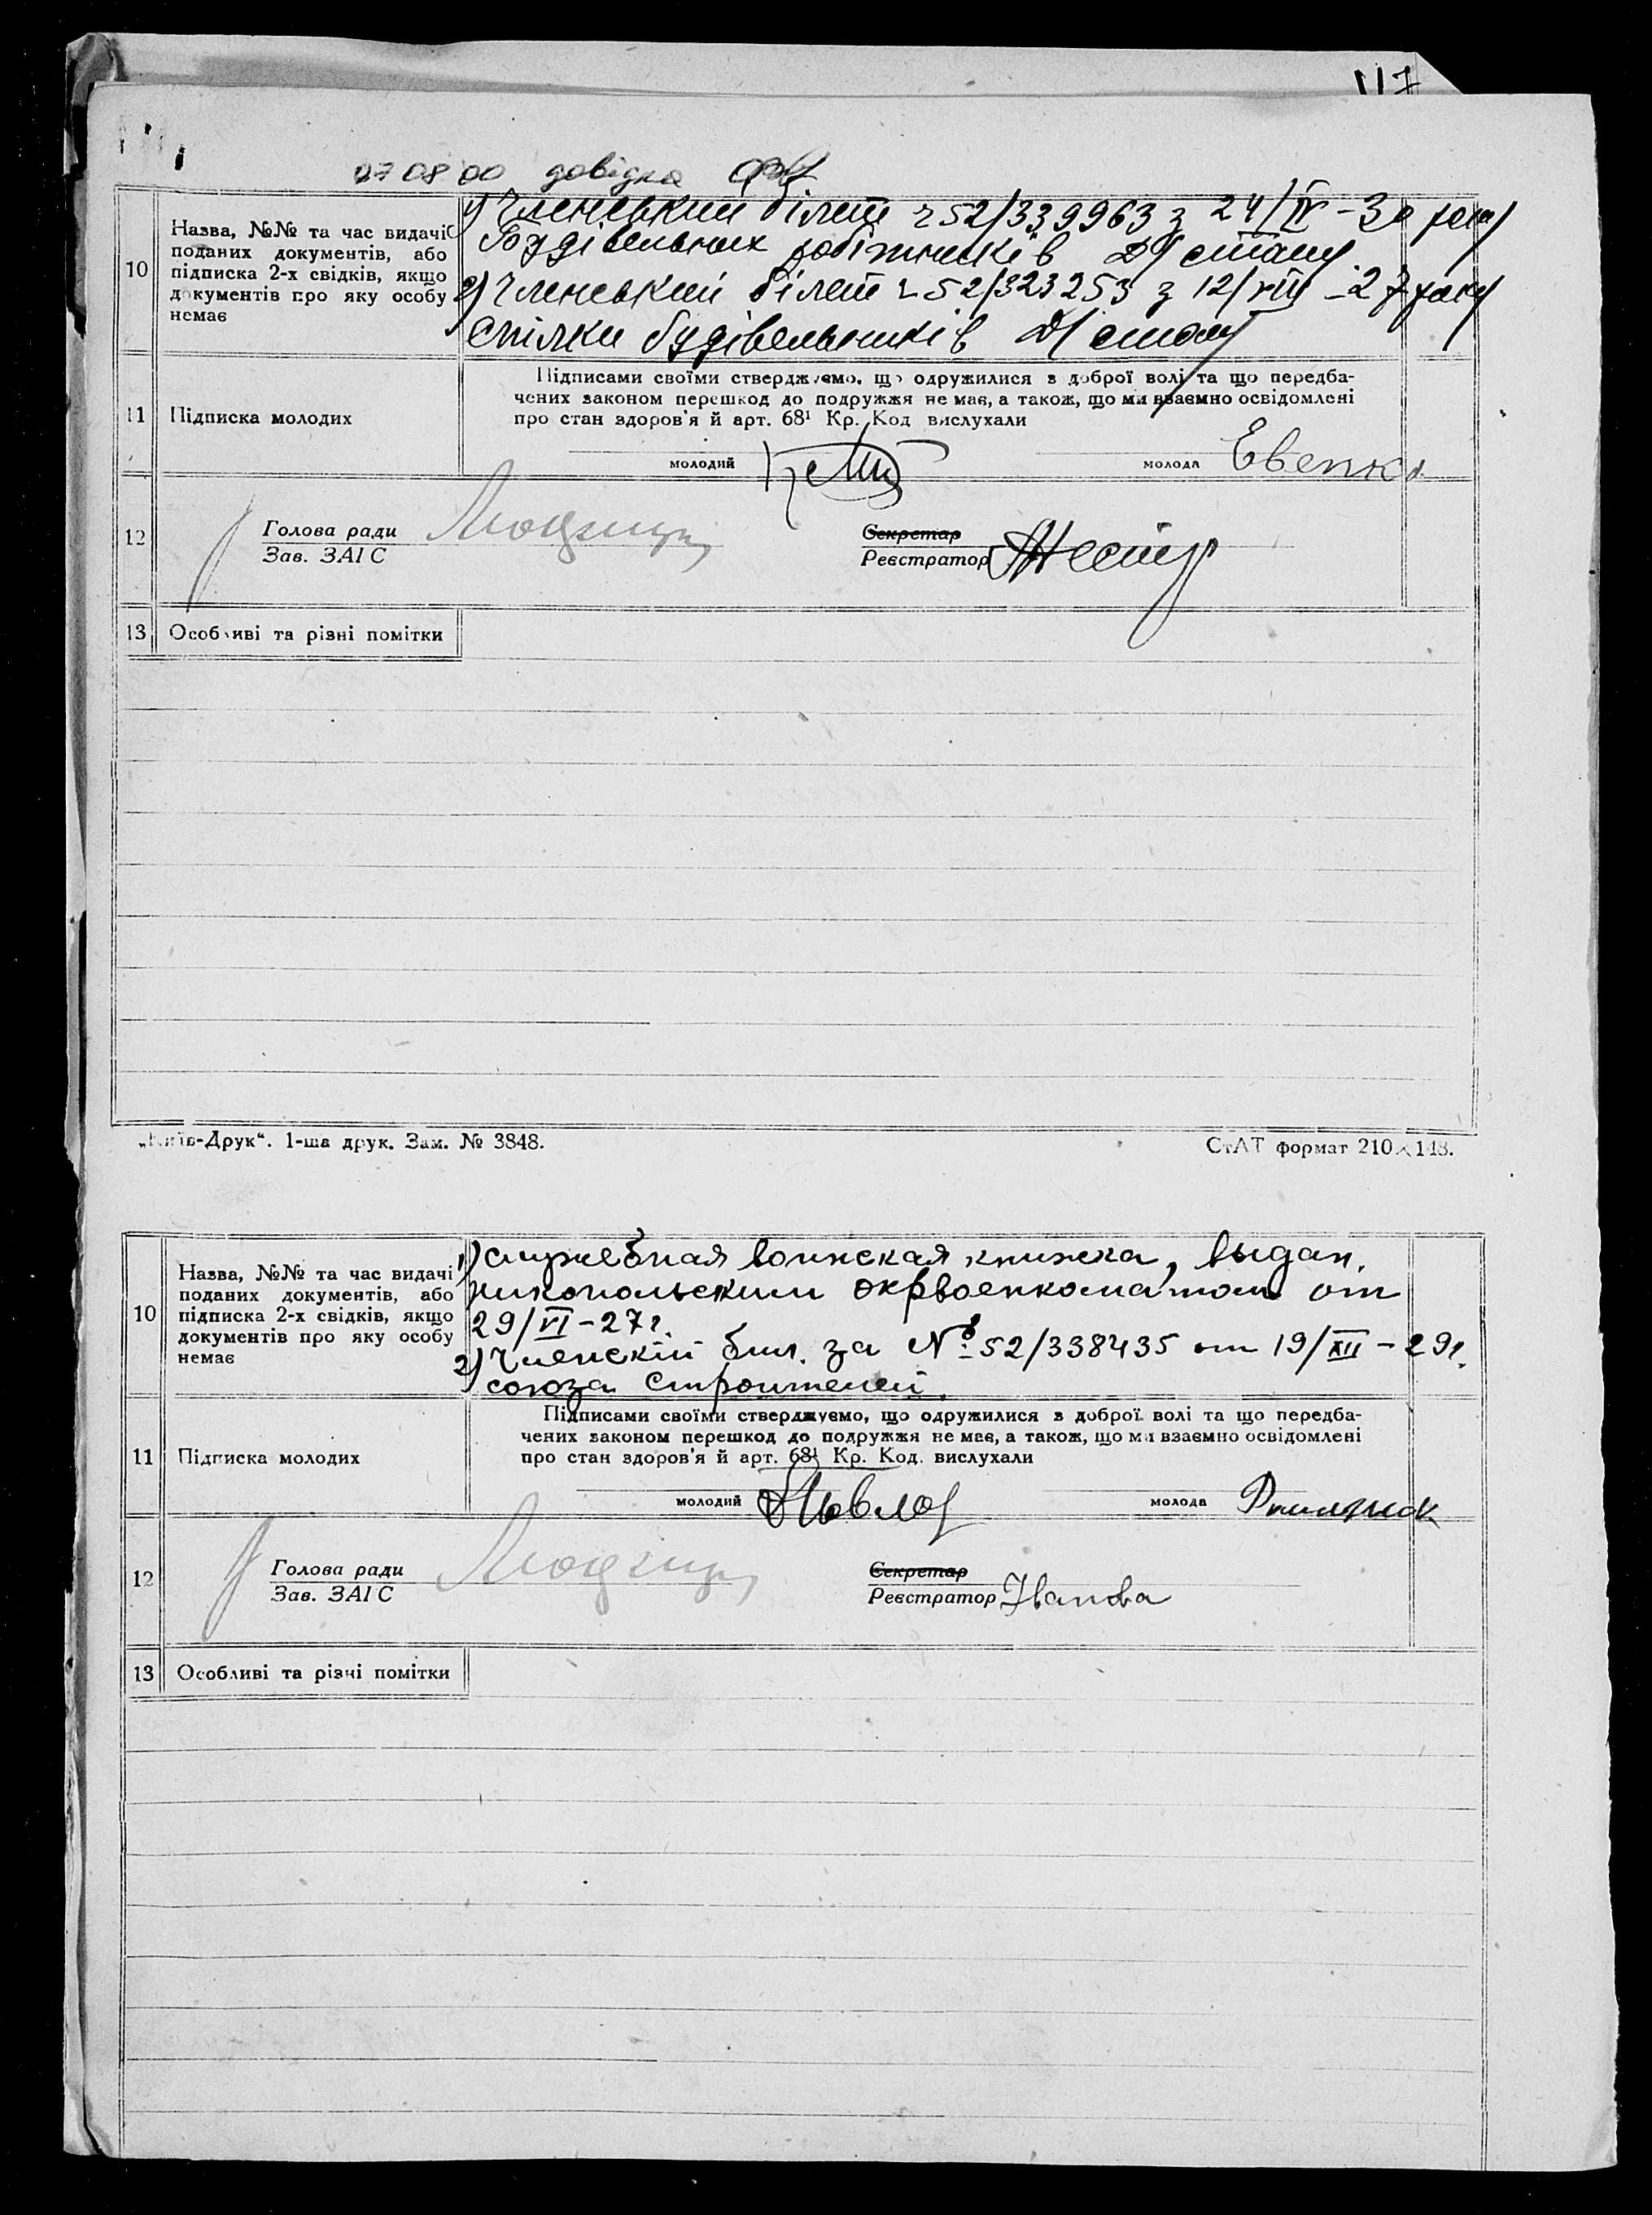 117
07 08 00 довідка
10
Назва, №№ та час видачі
поданих документів, або
підписка 2-х свідків, якщо
документів про яку особу
немає
1) Членський білет ч 52/339963 з 24/IV - 30 року
Будівельних робітників Д/стану
2) Членський білет ч 52/323253 з 12/VIII - 27 року
спілки будівельників Д/стану
11
Підписка молодих
Підписами своїми стверджуємо, що одружилися з доброї волі та що передба-
чених законом перешкод до подружжя не має, а також, що ми взаємно освідомлені
про стан здоров'я й арт. 68¹ Кр. Код вислухали
молодий
молода Евенко
12
Голова ради
Зав. ЗАГС
Секретар
Реєстратор
13 Особливі та різні помітки
„Київ-Друк“. 1-ша друк. Зам. № 3848.
СтАТ формат 210×148.
10
Назва, №№ та час видачі
поданих документів, або
підписка 2-х свідків, якщо
документів про яку особу
немає
1) служебная воинская книжка, выдан.
никопольским окрвоенкоматом от
29/VI - 27 г.
2) Членский бил. за № 52/338435 от 19/XII - 29 г.
союза строителей.
11
Підписка молодих
Підписами своїми стверджуємо, що одружилися з доброї волі та що передба-
чених законом перешкод до подружжя не має, а також, що ми взаємно освідомлені
про стан здоров'я й арт. 68¹ Кр. Код. вислухали
молодий
молода
12
Голова ради
Зав. ЗАГС
Секретар
Реєстратор Іванова
13 Особливі та різні помітки